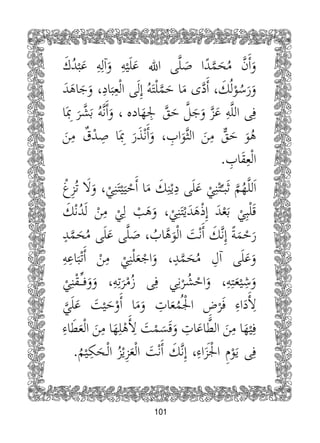 وَأَنَّ مُحَمَّدًا صَلَّى الله عَلَيْهِ وَآلِهِ عَبْدُكَ
وَرَسُوْلُكَ، أَدَّى مَا حَمَّلْتَهُ إِلَى الْعِبَادِ، وَجَاهَدَ
فِى اللَّهِ عَزَّ وَجَلَّ حَقَّ جِهَادِه ، وَأَنَّهُ بَشَّرَ بِمَا
هُوَ حَقٌّ مِنَ الثَّوَابِ، وَأَنْذَرَ بِمَا هُوَ صِدْقٌ مِنَ
الْعِقَابِ.
اَللَّهُمَّ ثَبِّتْنِيْ عَلَى دِيْنِكَ مَا أَحْيَيْتَنِيْ، وَلَا تُزِغْ
قَلْبِيْ بَعْدَ إِذْهَدَيْتَنِيْ، وَهَبْ لِيْ مِنْ لَدُنْكَ
رَحْمَةً إِنَّكَ أَنْتَ الْوَهَّابُ، صَلَّى عَلَى مُحَمَّدٍ
وَعَلَى آلِ مُحَمَّدٍ، وَاجْعَلْنِيْ مِنْ أَتْبَاعِهِ
وَشِيْعَتِهِ، وَاحْشُرْنِي فِى زُمْرَتِهِ، وَوَفِّقْنِيْ
لِأَدَاءِ فَرْضِ الْجُمُعَاتِ وَمَا أَوْجَبْتَ عَلَيَّ
فِيْهَا مِنَ الطَّاعَاتِ وَقَسَمْتَ لِأَهْلِهَا مِنَ الْعَطَاءِ
فِى يَوْمِ الْجَزَاءِ، إِنَّكَ أَنْتَ الْعَزِيْزُ الْحَكِيْمُ.
101